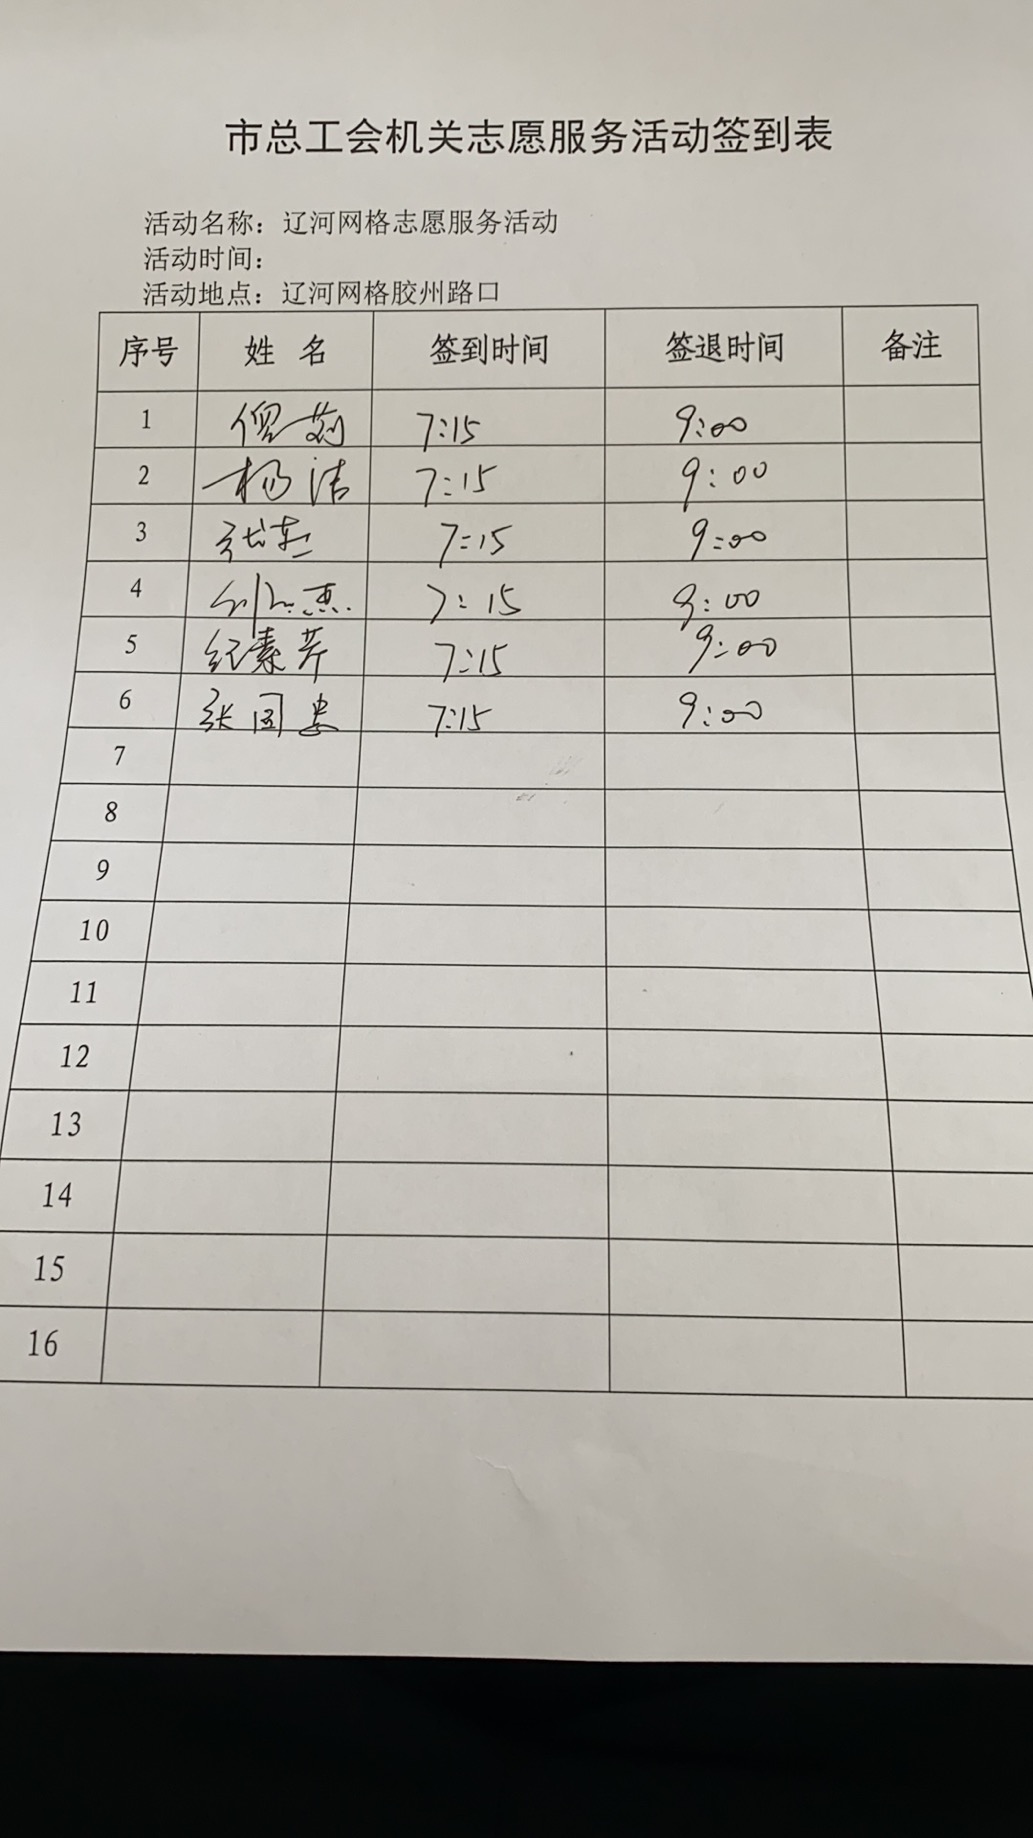 市总工会机关志愿服务活动签到表
活动名称：辽河网格志愿服务活动
活动时间：
活动地点：辽河网格胶州路口
序号 姓 名 签到时间 签退时间 备注
1 7:15 9:00
2 杨洁 7:15 9:00
3 7:15 9:00
4 7:15 9:00
5 纪素芹 7:15 9:00
6 张国忠 7:15 9:00
7
8
9
10
11
12
13
14
15
16